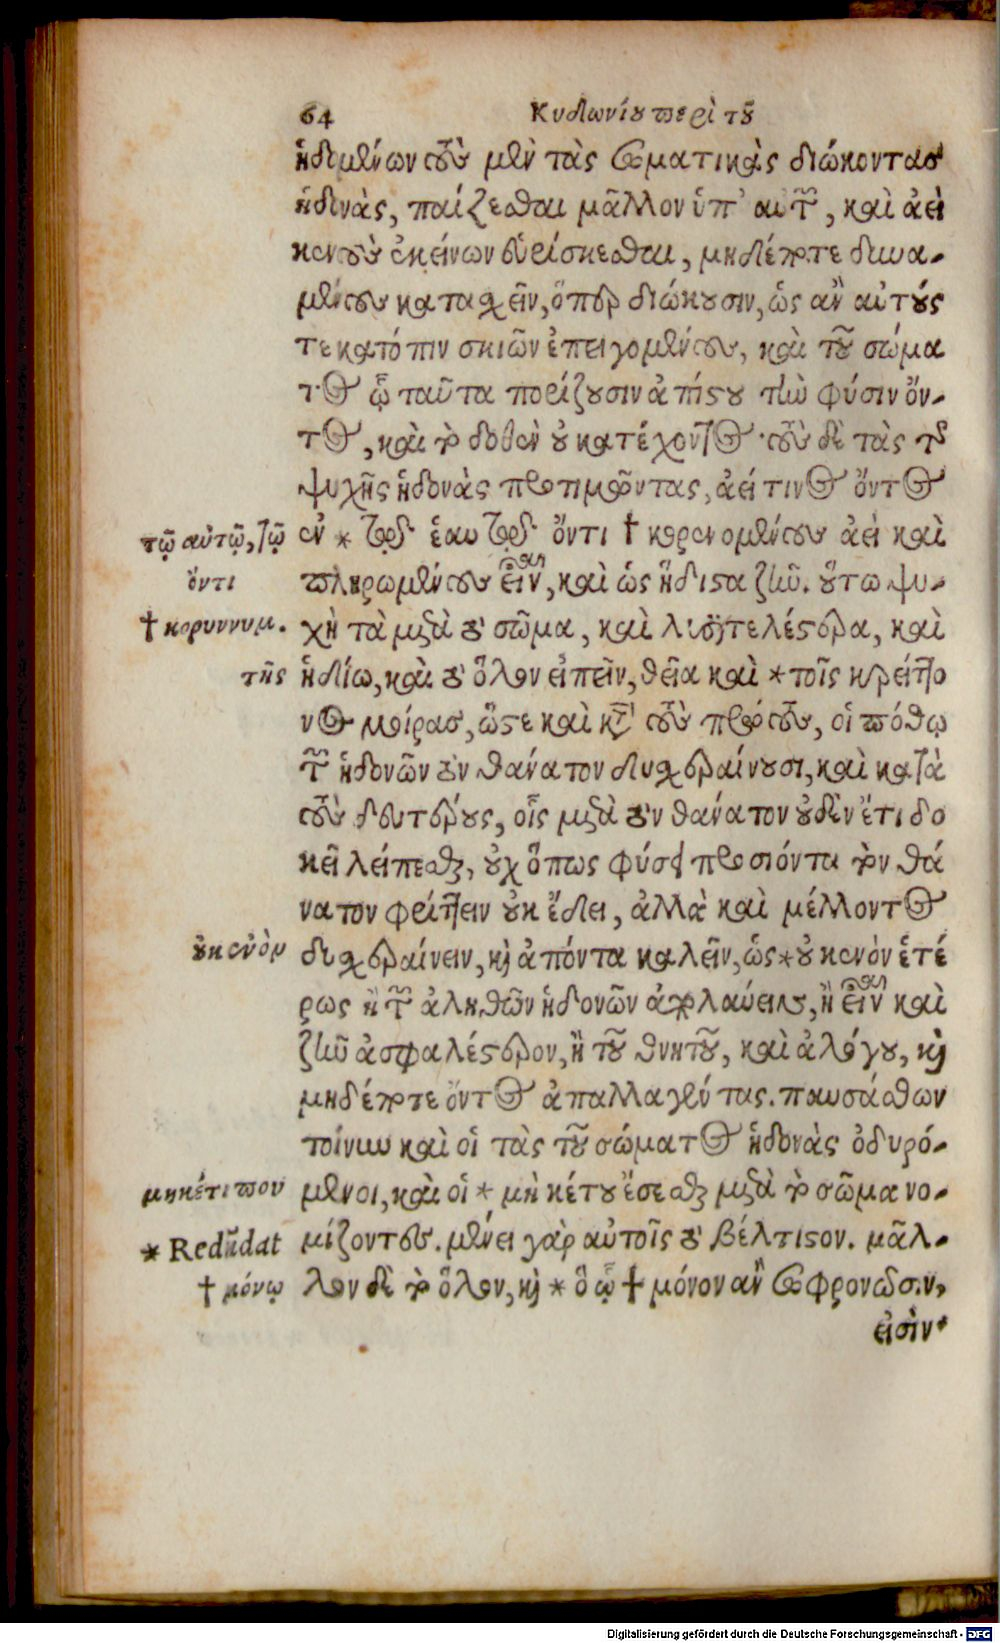 64 Κυδωνίου περὶ τοῦ
ἡδομένων τοὺς μὲν τὰς σωματικὰς διώκοντας
ἡδονὰς, παίζεσθαι μᾶλλον ὑπ' αυτῶν, καὶ ἀεὶ
κενοὺς ἐκείνων εὑρίσκεσθαι, μηδέποτε δυνα-
μένους κατασχεῖν, ὅπερ διώκουσιν, ὡς ἂν αὐτούς
τε κατόπιν σκιῶν ἐπειγομένους, καὶ τοῦ σώμα
τος ᾧ ταῦτα πορίζουσιν ἀπίστου τὴν φύσιν ὄν-
τος, καὶ τὸ δοθὲν οὐ κατέχοντος· τοὺς δὲ τὰς τῆς
ψυχῆς ἡδονὰς προτιμῶντας, ἀεί τινος ὄντος
τῷ αὐτῷ, τῷ ἐν * ἑαυ ὄντι † κορενομένους ἀεὶ καὶ
ὄντι πληρωμένους εἶναι, καὶ ὡς ἥδιστα ζῆν. οὕτω ψυ-
† κορυννυμ. χὴ τὰ μετὰ τὸ σῶμα, καὶ λυσιτελέστερα, καὶ
τῆς ἡδίω, καὶ τὸ ὅλον εἰπεῖν, θεῖα καὶ * τοῖς κρείττο
νος μοίρας, ὥστε καὶ κατὰ τοὺς πρότους, οἱ πόθῳ
τῶν ἡδονῶν τὸν θάνατον δυσχεραίνουσι, καὶ κατὰ
τοὺς δευτέρους, οἷς μετὰ τὸν θάνατον οὐδὲν ἔτι δο
κεῖ λείπεσθαι, οὐχ ὅπως φύσει προσιόντα τὸν θά
νατον φρίττειν οὐκ ἔδει, ἀλλὰ καὶ μέλλοντος
οὐκ ἐνὸν δυσχεραίνειν, καὶ ἀπόντα καλεῖν, ὡς * οὐκ ἐνὸν ἑτέ
ρως ἢ τῶν ἀληθῶν ἡδονῶν ἀπολαύειν, ἢ εἶναι καὶ
ζῆν ἀσφαλέστερον, ἢ τοῦ θνητοῦ, καὶ ἀλόγου, καὶ
μηδέποτε ὄντος ἀπαλλαγέντας. παυσάσθων
τοίνυν καὶ οἱ τὰς τοῦ σώματος ἡδονὰς ὀδυρό-
μηκέτι που μενοι, καὶ οἱ * μὴ κέτου ἔσεσθαι μετὰ τὸ σῶμα νο-
* Redūdat μίζοντες. μένει γὰρ αὐτοῖς τὸ βέλτιστον. μᾶλ-
† μόνῳ λον δὲ τὸ ὅλον, καὶ * ὃ ᾧ † μόνον ἂν σωφρονῶσιν,
εἰσὶν·
Digitalisierung gefördert durch die Deutsche Forschungsgemeinschaft - DFG